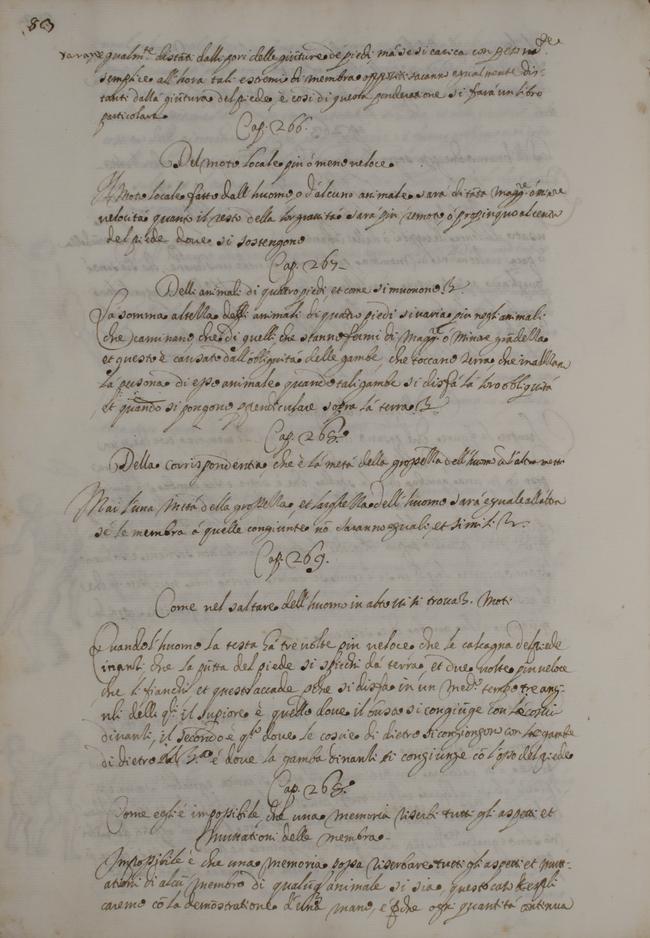 83
varanno equalmte distāti dalli pori delle giūture de piedi ma se si carica con peso nō
semplice all'hora tali estremi di membra saranno equalmente dis-
tanti dalla giūtura del piede, e cosi di questa ponderatione si farà un libro
particolare
Cap. 266.
Del moto locale piu ò meno veloce.
Il Moto locale fatto dall huomo, o d'alcuno animale sarà di tāta magge ò
velocità quanto il resto della lor gravità sarà piu remoto ò propinquo al centro
del piede dove si sostengono
Cap. 267
Delli animali di quattro piedi et come si muovono
La somma altezza delli animali di quattro piedi si varia piu negli animali
che caminano, che di quelli che stanno fermi di magge ò
et questo è causato dall'obliquità delle gambe, che toccano terra che inalzano
la persona di esso animale quando tali gambe si disfà la loro obliquità
et quando si pongono sopra la terra
Cap. 268.
Della corrispondentia, che è la metà della grossezza dell'huomo
Mai l'una mità della grossezza et larghezza dell'huomo sarà equale all'altra
se le membra à quelle congiunte nō saranno equali et simili
Cap. 269.
Come nel saltare dell'huomo in alto si trova 3. Moti
Quando l'huomo la testa hà tre volte piu veloce che le calcagna del piede
inanti che la pūta del piede si spicchi da terra et due volte piu veloce
che li fianchi et questo accade pche si disfà in un medo tempo tre ang-
uli delli qli il supiore è quello dove il busto si congiūge con le coscie
dinanti, il secondo è qlo dove le coscie di dietro si congiongono con le gambe
di dietro il 3o è dove la gamba dinanti si congiunze cō l'osso del piede
Cap. 268.
Come egli è impossibile che una memoria riserbi tutti gli aspetti et
muttationi delle membra.
Impossibile è che una memoria possa riserbare tutti gli aspetti et mut-
ationi di alcū membro di qualūq animale si sia, questo caso
caremo cō la demōstratione d'una mano, è pche ogni quantità continua